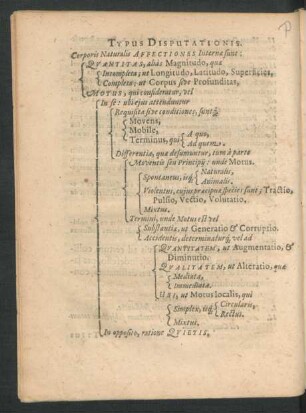 TYPUS DISPUTATIONIS.
Corporis Naturalis AFFECTIONES Internæ sunt:
QVANTITAS, aliàs Magnitudo, quæ
Incompleta; ut Longitudo, Latitudo, Superficies,
Completa; ut Corpus sive Profunditas,
MOTUS, qui consideratur, vel
In se: ubi ejus attenduntur
Requisita sive conditiones, sunt
Movens,
Mobile,
Terminus, qui
A quo,
Ad quem.
Differentiæ, quæ desumuntur, tum à parte
Moventis seu Principij: unde Motus.
Spontaneus, isq;
Naturalis,
Animalis.
Violentus, cujus præcipuæ species sunt, Tractio,
Pulsio, Vectio, Volutatio,
Mixtus.
Termini, unde Motus est vel
Substantiæ, ut Generatio & Corruptio.
Accidentis, determinaturq; vel ad
QVANTITATEM, ut Augmentatio, &
Diminutio.
QVALITATEM, ut Alteratio, quæ
Mediata,
Immediata.
Ubi, ut Motus localis, qui
Simplex, isq;
Circularis,
Rectus.
Mixtus,
In opposito, ratione QVIETIS.